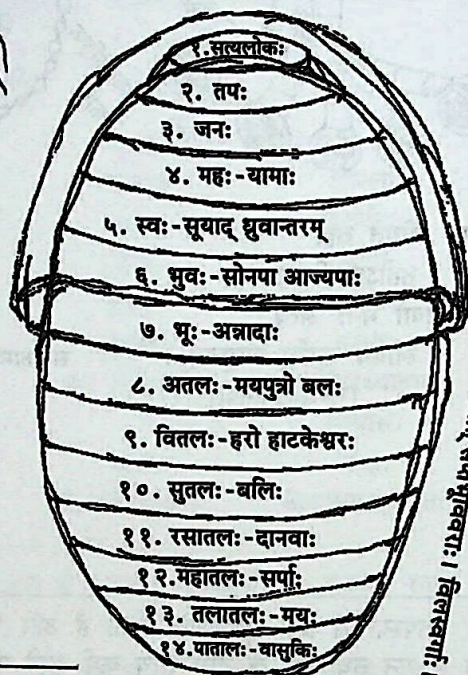 १.सत्यलोकः
२. तपः
३. जनः
४. महः-यामाः
५. स्वः-सूयाद् ध्रुवान्तरम्
६. भुवः-सोनपा आज्यपाः
७. भूः-अन्नादाः
८. अतलः-मयपुत्रो बलः
९. वितलः-हरो हाटकेश्वरः
१०. सुतलः-बलिः
११. रसातलः-दानवाः
१२.महातलः-सर्पाः
१३. तलातलः-मयः
१४.पातालः-वासुकिः